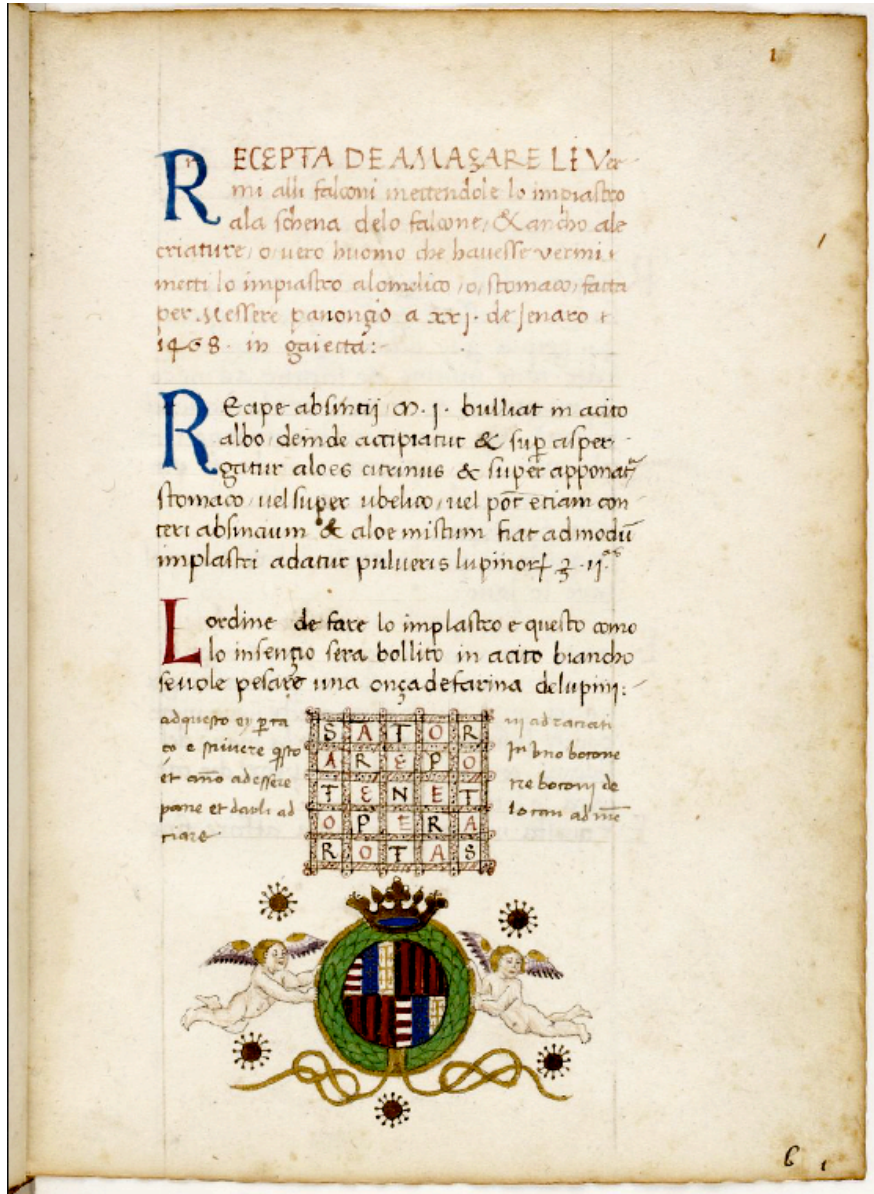 1
RECEPTA DE AMAÇARE LI Ver-
mi alli falconi mettendole lo impiastro
ala schena delo falcone, & ancho ale
criature, o, vero huomo che havesse vermi,
metti lo impiastro alomelico, o, stomaco, facta
per Messere panonçio a xxj. de Jenaro
1468. in gaiecta:-
REcipe absintij m. j. bulliat in acito
albo, deinde accipiatur & sup asper-
gatur aloes citrinus & super apponat
stomaco, vel super ubelico, vel pot etiam con-
teri absincium & aloe mistum fiat ad modū
implastri adatur pulveris lupinor ʒ. ij.
Lordine de fare lo implastro e questo como
lo insençio sera bollito in acito biancho
se vole pesare una onça de farina de lupini:-
ad questo
co e scrivere qsto In uno bocone
et año ad essere tre boconi de
pane et darli ad lo can ad
ciare
S A T O R
A R E P O
T E N E T
O P E R A
R O T A S
6 1